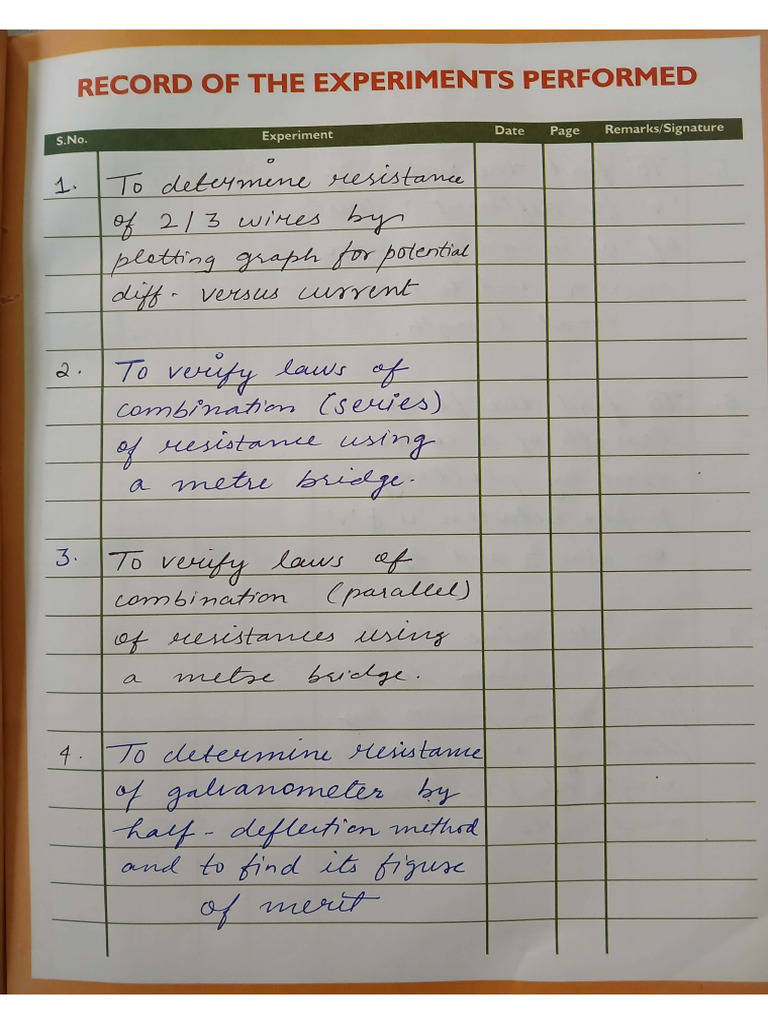 RECORD OF THE EXPERIMENTS PERFORMED
S.No. Experiment Date Page Remarks/Signature
1. To determine resistance
of 2/3 wires by
plotting graph for potential
diff. versus current
2. To verify laws of
combination (series)
of resistance using
a metre bridge.
3. To verify laws of
combination (parallel)
of resistances using
a metre bridge.
4. To determine resistance
of galvanometer by
half-deflection method
and to find its figure
of merit